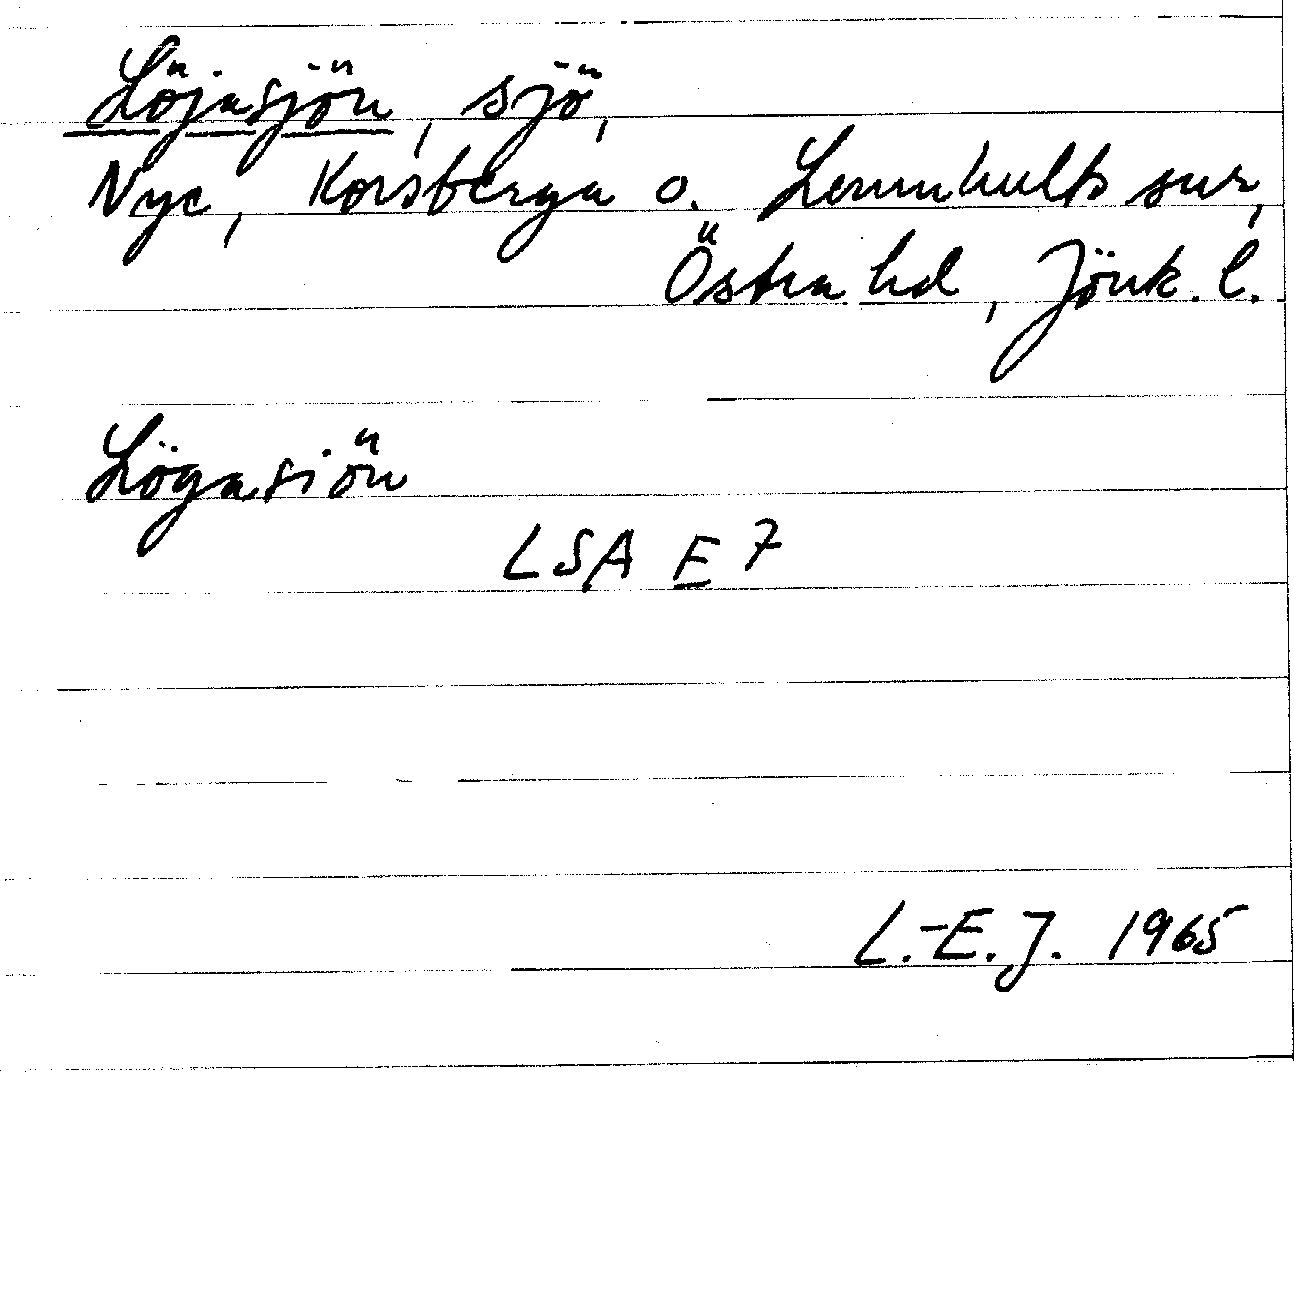 Löjasjön, sjö,
Nye, Korsberga o. Lemnhults snr,
Östra hd, Jönk. l.
Lögasiön
LSA E 7
L.-E.J. 1965